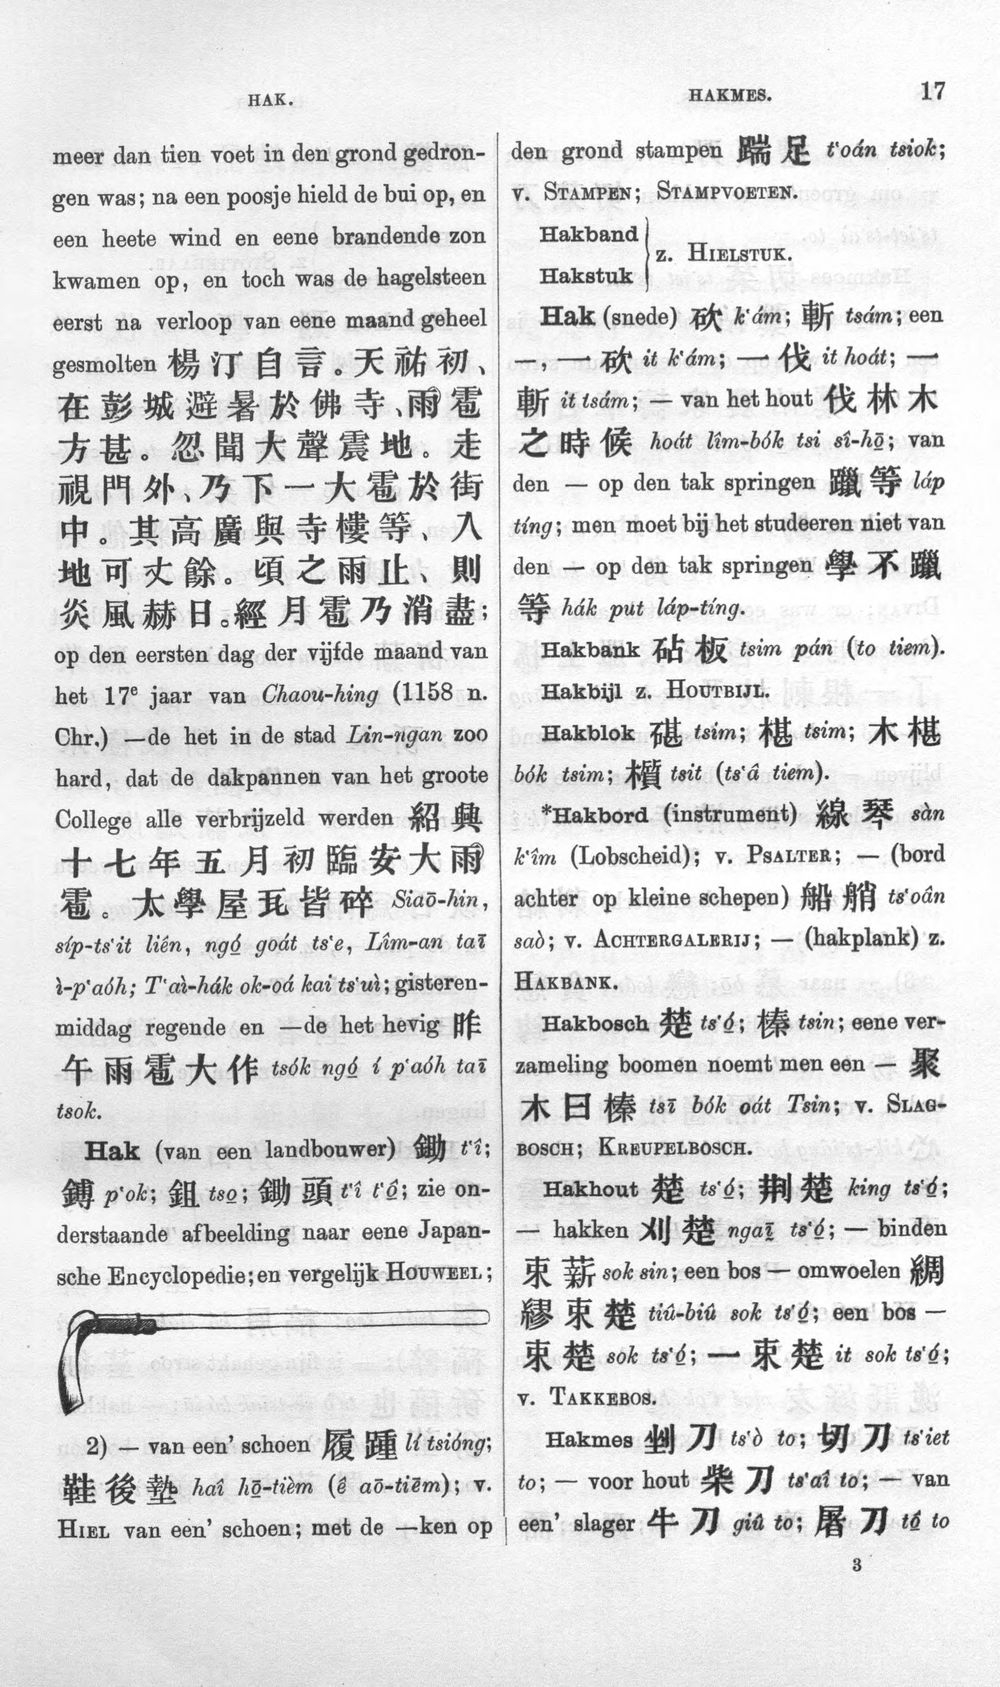 HAK.
HAKMES.
17
meer dan tien voet in den grond gedron-
gen was; na een poosje hield de bui op, en
een heete wind en eene brandende zon
kwamen op, en toch was de hagelsteen
eerst na verloop van eene maand geheel
gesmolten 楊汀自言。天祐初、
在彭城避暑於佛寺、雨雹
方甚。忽聞大聲震地。走
視門外、乃下一大雹於街
中。其高廣與寺樓等、入
地可丈餘。頃之雨止、則
炎風赫日。經月雹乃消盡;
op den eersten dag der vijfde maand van
het 17e jaar van Chaou-hing (1158 n.
Chr.) —de het in de stad Lin-ngan zoo
hard, dat de dakpannen van het groote
College alle verbrijzeld werden 紹興
十七年五月初臨安大雨
雹。太學屋瓦皆碎 Siaō-hin,
síp-ts‘it liên, ngó̤ goát ts‘e, Lîm-an taī
ì-p‘aóh; T‘aì-hák ok-oá kai ts‘uì; gisteren-
middag regende en —de het hevig 昨
午雨雹大作 tsók ngó̤ í p‘aóh taī
tsok.
Hak (van een landbouwer) 鋤 t‘î;
鎛 p‘ok; 鉏 tso̤; 鋤頭 t‘î t‘ô̤; zie on-
derstaande afbeelding naar eene Japan-
sche Encyclopedie; en vergelijk HOUWEEL;
2) — van een’ schoen 履踵 lí tsióng;
鞋後墊 haî hō̤-tièm (ê aō-tiēm); v.
HIEL van een’ schoen; met de —ken op
den grond stampen 踹足 t‘oán tsiok;
v. STAMPEN; STAMPVOETEN.
Hakband
Hakstuk
z. HIELSTUK.
Hak (snede) 砍 k‘ám; 斬 tsám; een
—, 一砍 it k‘ám; 一伐 it hoát; 一
斬 it tsám; — van het hout 伐林木
之時候 hoát lîm-bók tsi sî-hō̤; van
den — op den tak springen 躐等 láp
tíng; men moet bij het studeeren niet van
den — op den tak springen 學不躐
等 hák put láp-tíng.
Hakbank 砧板 tsim pán (to tiem).
Hakbijl z. HOUTBIJL.
Hakblok 碪 tsim; 椹 tsim; 木椹
bók tsim; 櫍 tsit (ts‘â tiem).
*Hakbord (instrument) 線琴 sàn
k‘îm (Lobscheid); v. PSALTER; — (bord
achter op kleine schepen) 船艄 ts‘oân
saò; v. ACHTERGALERIJ; — (hakplank) z.
HAKBANK.
Hakbosch 楚 ts‘ó̤; 榛 tsin; eene ver-
zameling boomen noemt men een — 聚
木曰榛 tsī bók oát Tsin; v. SLAG-
BOSCH; KREUPELBOSCH.
Hakhout 楚 ts‘ó̤; 荆楚 king ts‘ó̤;
— hakken 刈楚 ngaī ts‘ó̤; — binden
束薪 sok sin; een bos — omwoelen 綢
繆束楚 tiû-biû sok ts‘ó̤; een bos —
束楚 sok ts‘ó̤; 一束楚 it sok ts‘ó̤;
v. TAKKEBOS.
Hakmes 剉刀 ts‘ò to; 切刀 ts‘iet
to; — voor hout 柴刀 ts‘aî to; — van
een’ slager 牛刀 giû to; 屠刀 tô̤ to
3